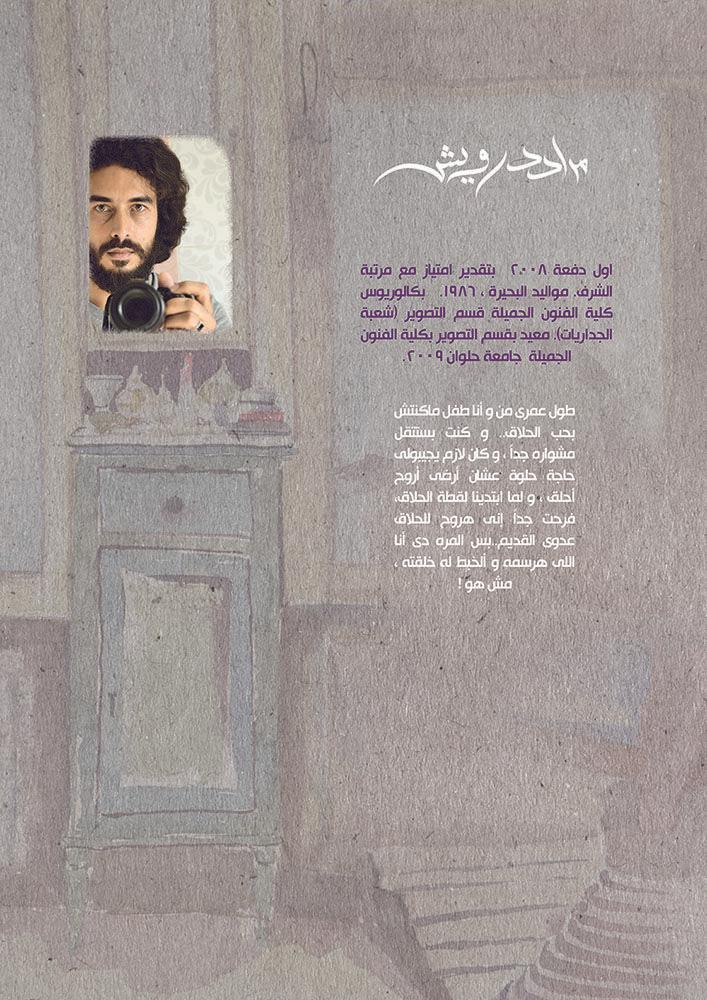 درويش
اول دفعة ٢٠٠٨ بتقدير امتياز مع مرتبة
الشرف. مواليد البحيرة ، ١٩٨٦. بكالوريوس
كلية الفنون الجميلة، قسم التصوير (شعبة
الجداريات). معيد بقسم التصوير بكلية الفنون
الجميلة جامعة حلوان ٢٠٠٩.
طول عمرى من و أنا طفل ماكنتش
بحب الحلاق.. و كنت بستتقل
مشواره جداً ، و كان لازم يجيبولى
حاجة حلوة عشان أرضى أروح
أحلق ، و لما ابتدينا لقطة الحلاق،
فرحت جداً إنى هروح للحلاق
عدوى القديم..بس المره دى أنا
اللى هرسمه و ألخبط له خلقته ،
مش هو !